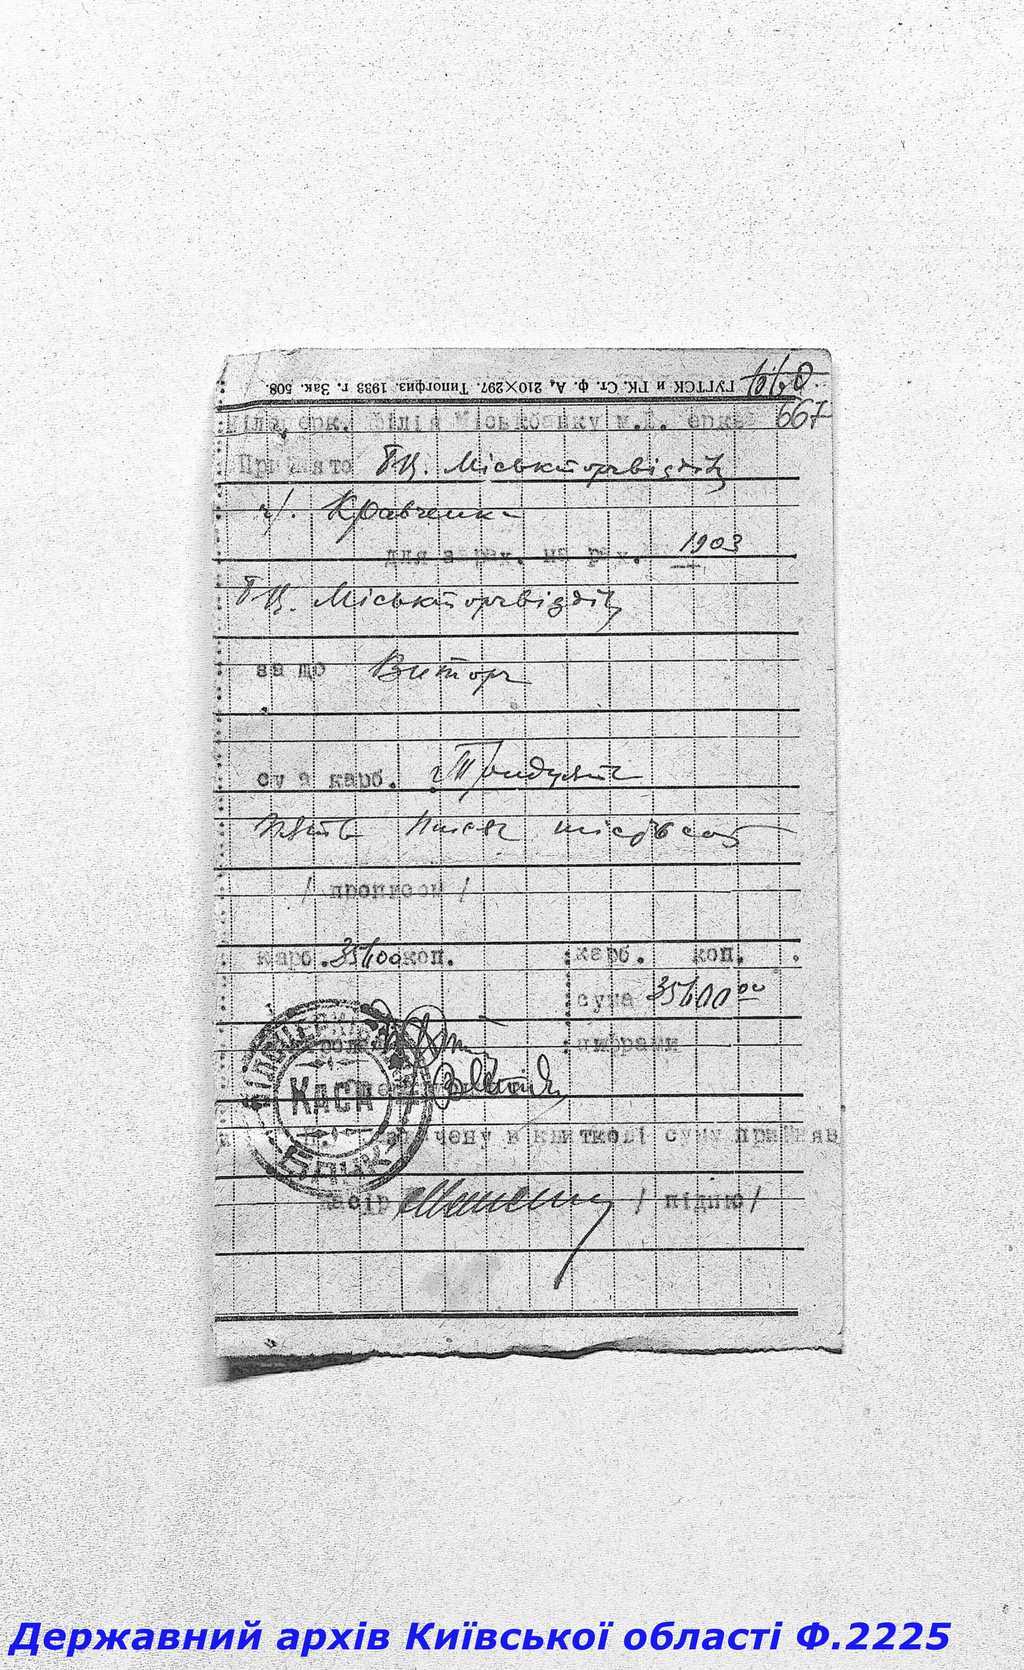 ГУГТСК и ГК. Ст. ф. А₄ 210×297. Типогфиз. 1933 г. Зак. 508.
667
філія Міськбанку м.Б.
Прийнято БЦ. Міськторгвідділ
гр. Кравченк
для зарах. на рах. 1903
БЦ. Міськторгвідділ
за що Виторг
сума карб. Тридцять
пять тисяч шістьсот
/ прописом /
карб. 35600 коп. карб. коп.
сума 35600 00
цифрами
Каса
Банк
зазначену в квиткові суму прийняв
касір / підпис /
Державний архів Київської області Ф.2225